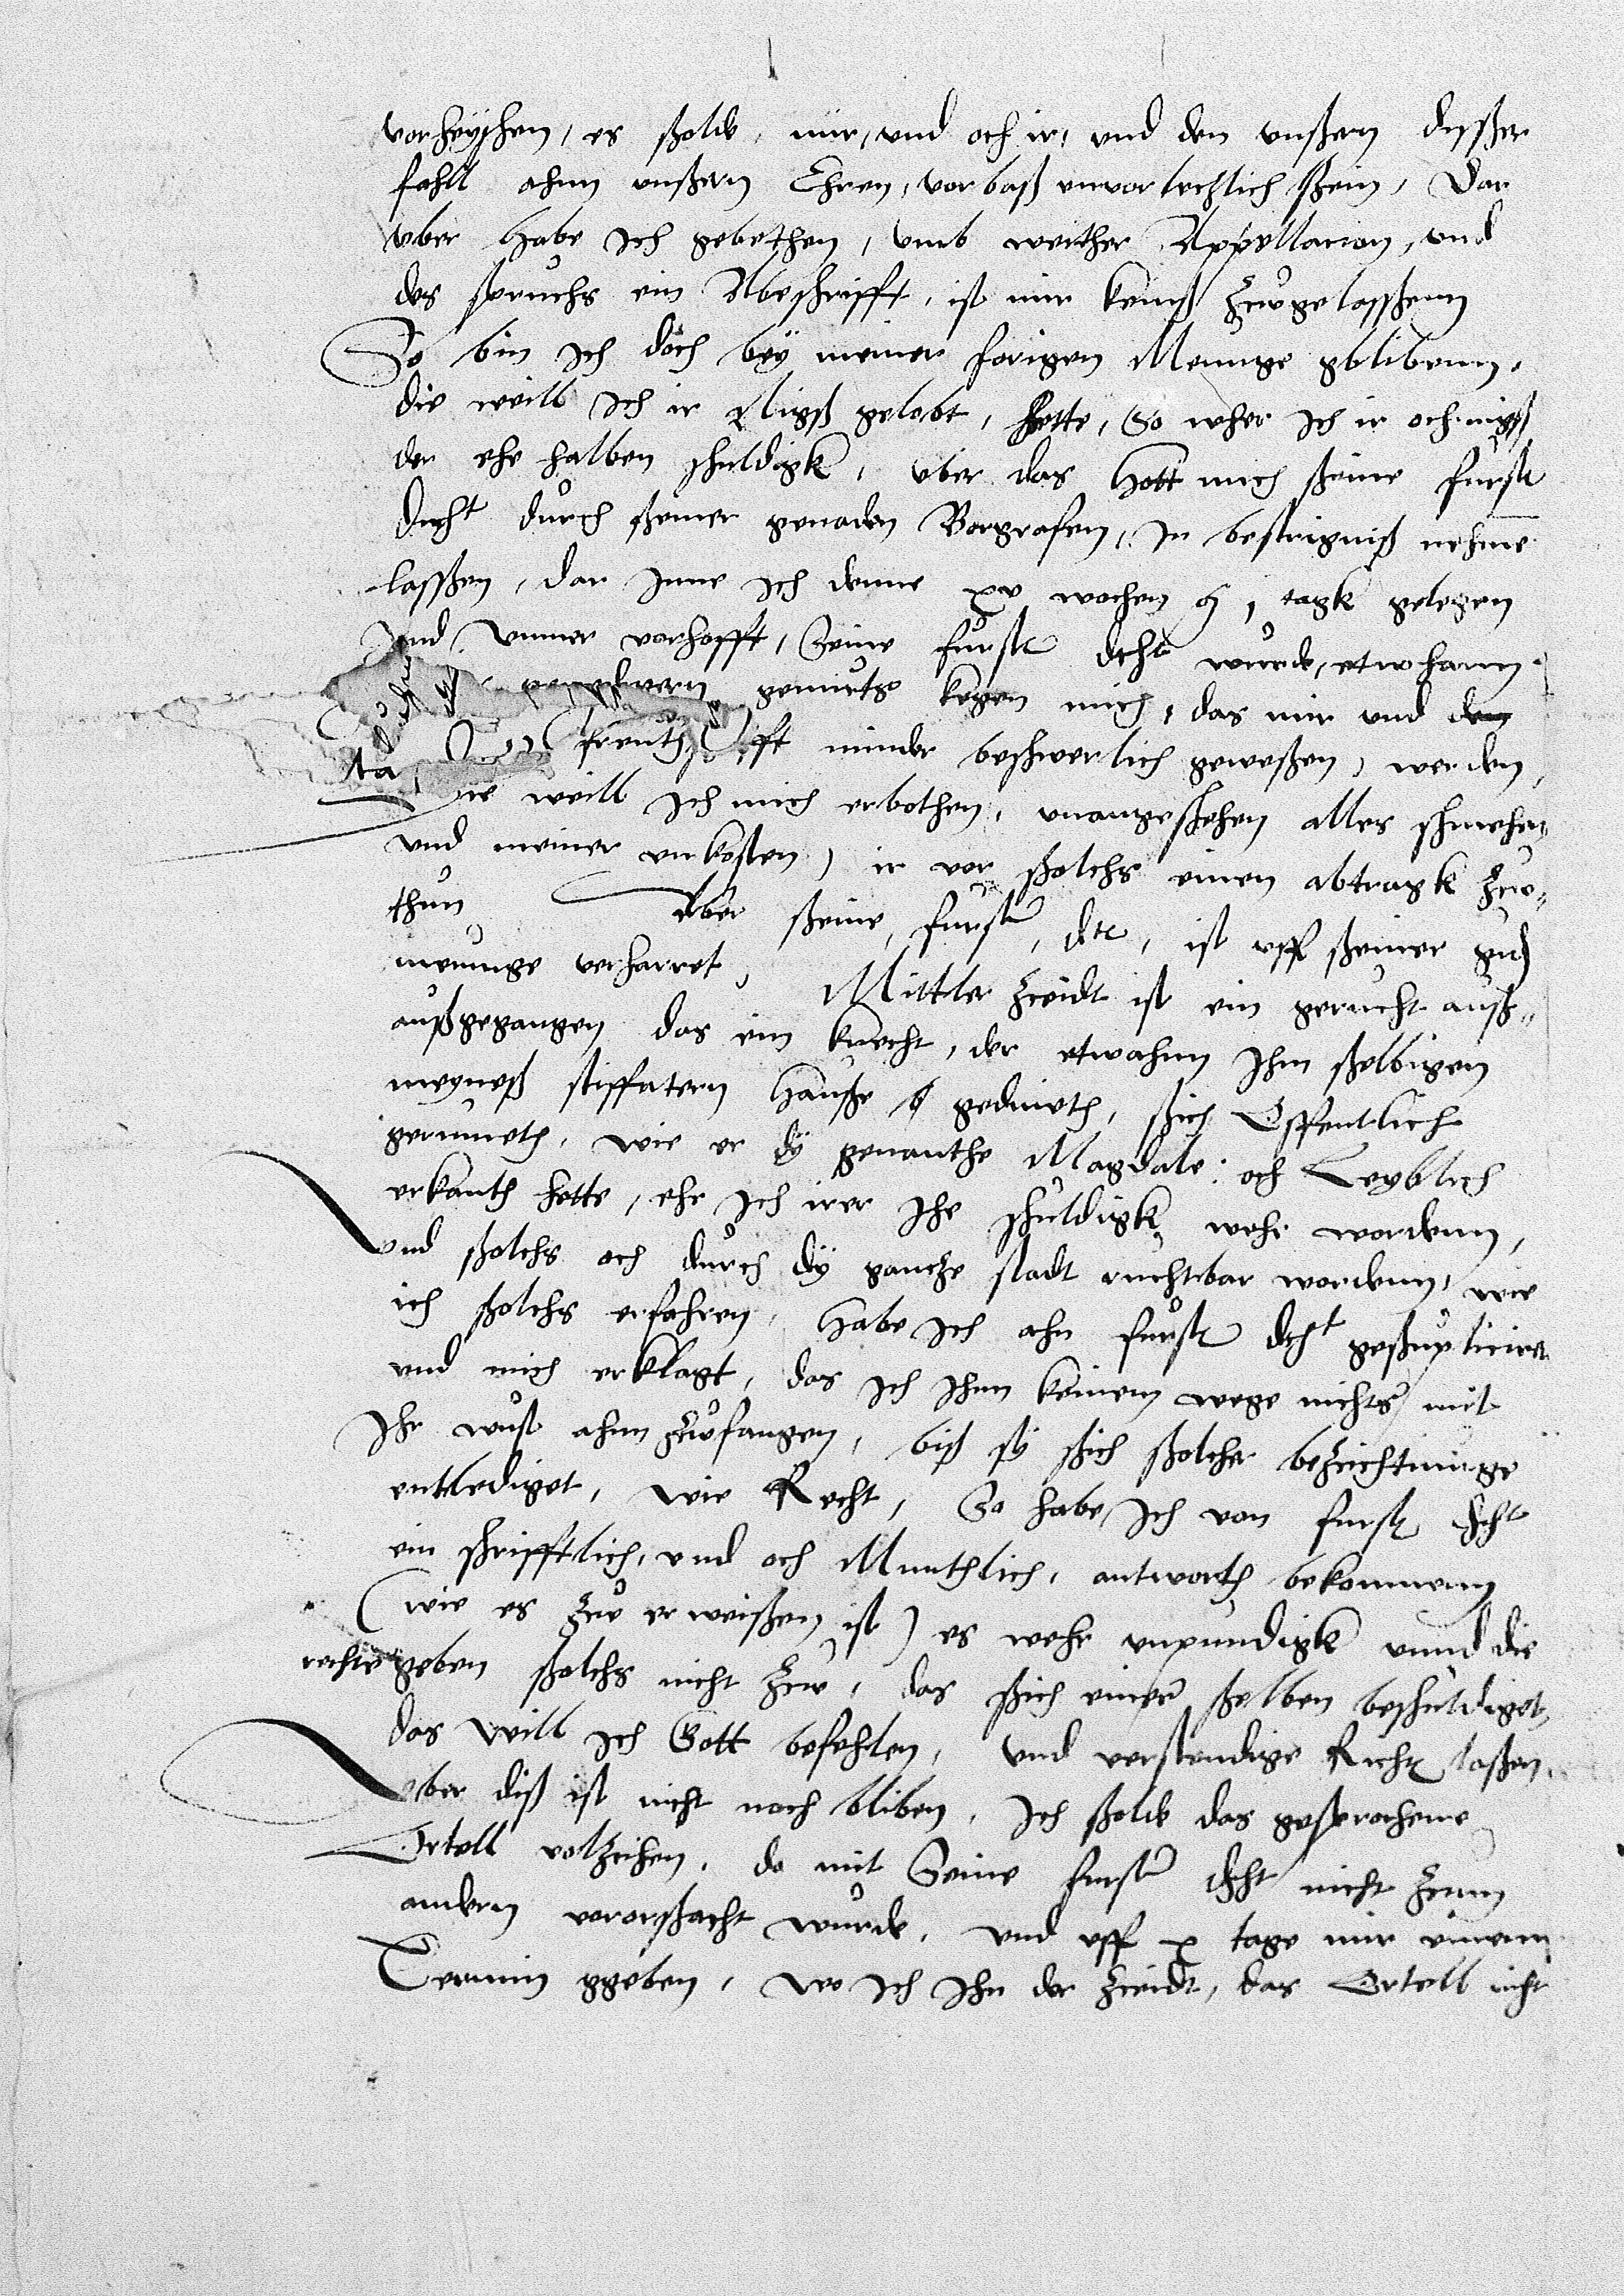 vorheyschen, es ßolde, mir, vnd och ir, vnd den vnßern dyßer
fahll ahnn vnßern Ehren, vorbaß vnvorletzlich ßein, Dar
vber habe Ich gebethen, vmb weither Appellacion, vnd
des spruchs ein Abeschrifft, ist mir keinß zwgelasßenn
So bin Ich doch bey meiner forigen Meinnge gblibenn,
die weill Ich ir Nigß gelobt, hette, So wher Ich ir och nigß
der ehe halben schuldigk, vber das Hott mich ßeine furst
dcht durch ßeiner genaden Borgrafen, In bestrigniß nehme
lasßen, dar Inne Ich denne xv wochen tagk gelegen
Vnd vmmer vorhofft, Seine furst dcht wurde, etwhann
gemutes kegen mich, das mir vnd den
freuth minder beschwerlich geweßen, werden,
weill Ich mich erbothen, vnangeßehen alles schmehen
vnd meiner vnkosten, ir vor ßolchs einen abtragk zw
thun Aber ßeine, furst, dcht, ist vff ßeiner
meinnge verharret, Mittler zceidt ist ein gerucht auß
außgegangen das ein knecht, der etwahnn Ihm ßelbigen
meyneß stiffatern Hauße gedineth, ßich Offentlich
gerumeth, wie er dy genanthe Magdale: och Leyblich
erkanth hette, ehe Ich irer Ihe schuldigk wehr wordenn,
Vnd ßolchs och durch dy gantze stadt ruchtbar wordenn, wie
ich ßolchs erfahren, habe Ich ahn furst dcht geßupliciret
vnd mich erklagt, das Ich Ihnn keinem wege nichts mit
Ihr wust ahnn zwfangen, biß sy ßich ßolcher bezeichtunge
entlediget, wie Recht, So habe Ich von furst dcht
ein schrifftlich, vnd och Munthlich, antworth bekommenn
(wie es zw erweißen ist) es wehr vnpundigk vnnd die
rechte geben ßolchs nicht zw, das ßich einer ßelben beschuldiget,
das will Ich Gott befehlen, vnd verstendige Richt laßen,
Vber diß ist nicht noch bliben, Ich ßolde das gesprochene
Ortell volzcihen, do mit Seine furst dcht nicht zcum
andern vororßacht wurde, vnd vff x tage mir einenn
Termin ggeben, wo Ich Ihn der zceidt, das Ortell nicht